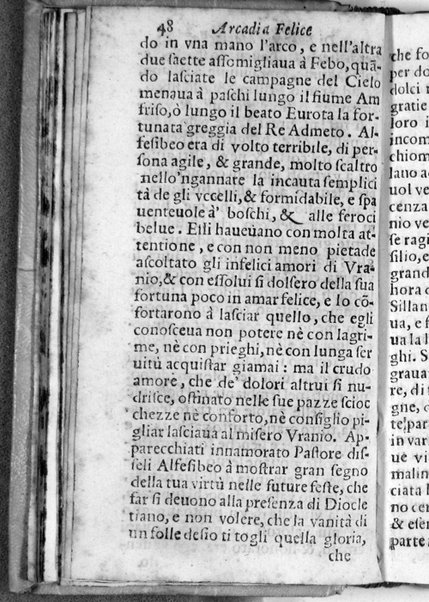 48 Arcadia Felice
do in vna mano l'arco, e nell'altra
due saette assomigliaua à Febo, quã
do lasciate le campagne del Cielo
menaua à paschi lungo il fiume Am
friso, ò lungo il beato Eurota la for-
tunata greggia del Re Admeto. Al-
fesibeo era di volto terribile, di per-
sona agile, & grande, molto scaltro
nello'ngannare la incauta semplici
tà de gli vccelli, & formidabile, e spa
uenteuole à' boschi, & alle feroci
belue. Elli haueuano con molta at-
tentione, e con non meno pietade
ascoltato gli infelici amori di Vra-
nio, & con essolui si dolsero della sua
fortuna poco in amar felice, e lo cõ-
fortarono à lasciar quello, che egli
conosceua non potere nè con lagri-
me, nè con prieghi, nè con lunga ser
uitù acquistar giamai: ma il crudo
amore, che de' dolori altrui si nu-
drisce, ostinato nelle sue pazze scioc
chezze nè conforto, nè consiglio pi-
gliar lasciaua al misero Vranio. Ap-
parecchiati innamorato Pastore dis-
seli Alfesibeo à mostrar gran segno
della tua virtù nelle future feste, che
far si deuono alla presenza di Diocle
tiano, e non volere, che la vanità di
un folle desio ti togli quella gloria,
che
che fo
per do
dolci
gratie
loro i
incom
chiom
lano a
uol ve
cenza
nio ve
se ragi
silio, e
grand
hora
Sillan
ua, e f
ua la l
ghi. S
graua
re, di
gne, c
te, par
in var
ue vi
malin
ciata
no cer
& ess
parte